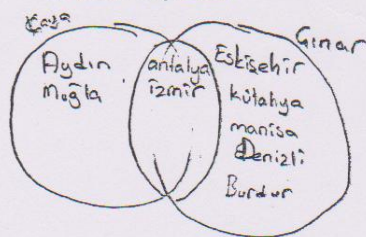 Çaya
Gınar
Aydın
Muğla
antalya
izmir
Eskişehir
kütahya
manisa
Denizli
Burdur